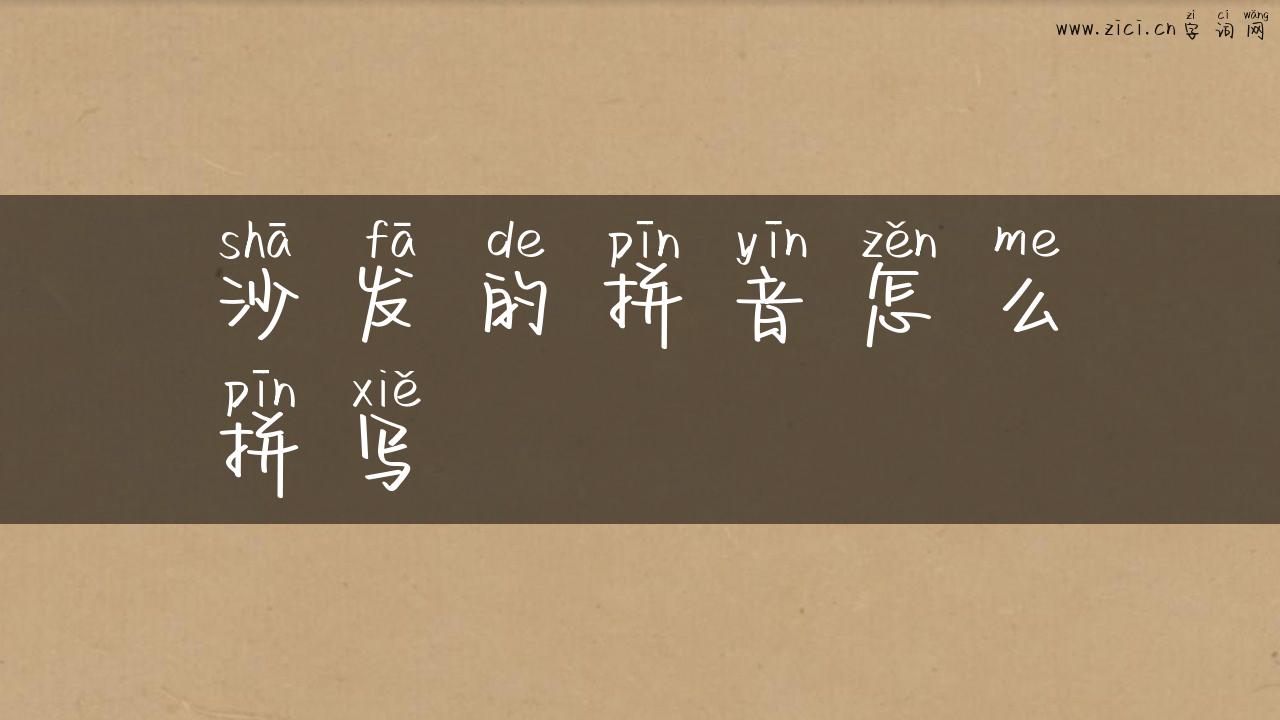 zì cí wǎng
www.zici.cn 字词网
shā fā de pīn yīn zěn me
沙发的拼音怎么
pīn xiě
拼写